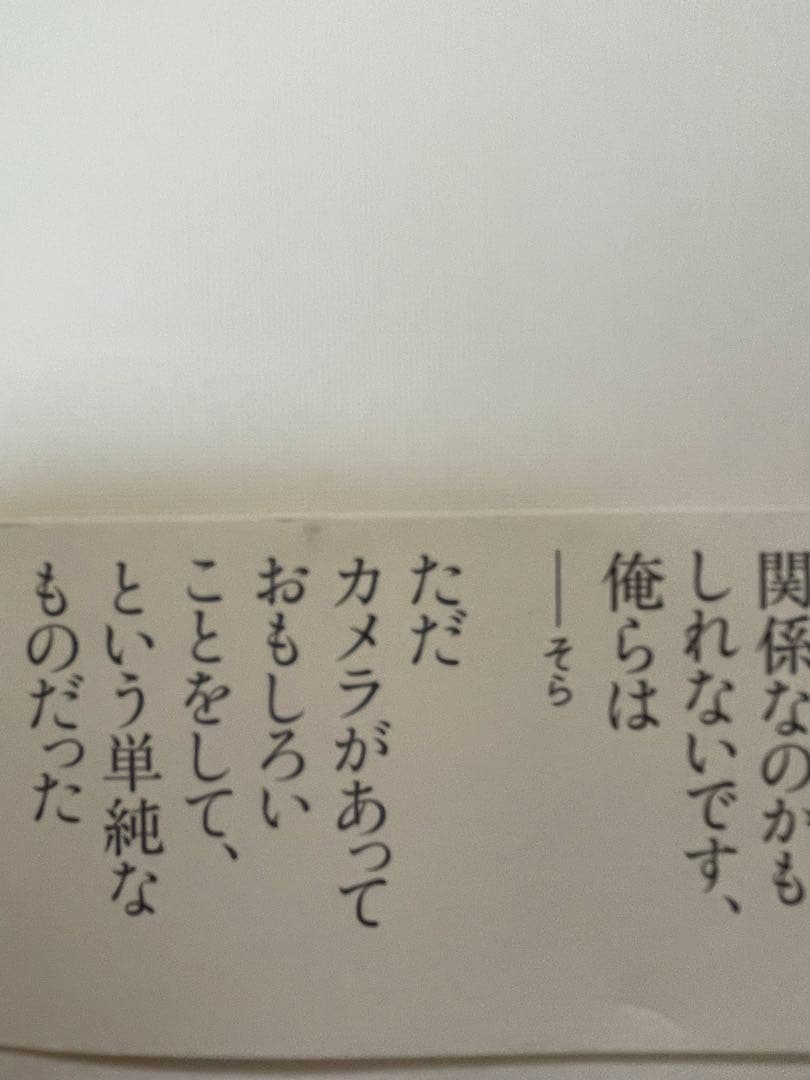 関係なのかも
しれないです、
俺らは
――そら
ただ
カメラがあって
おもしろい
ことをして、
という単純な
ものだった